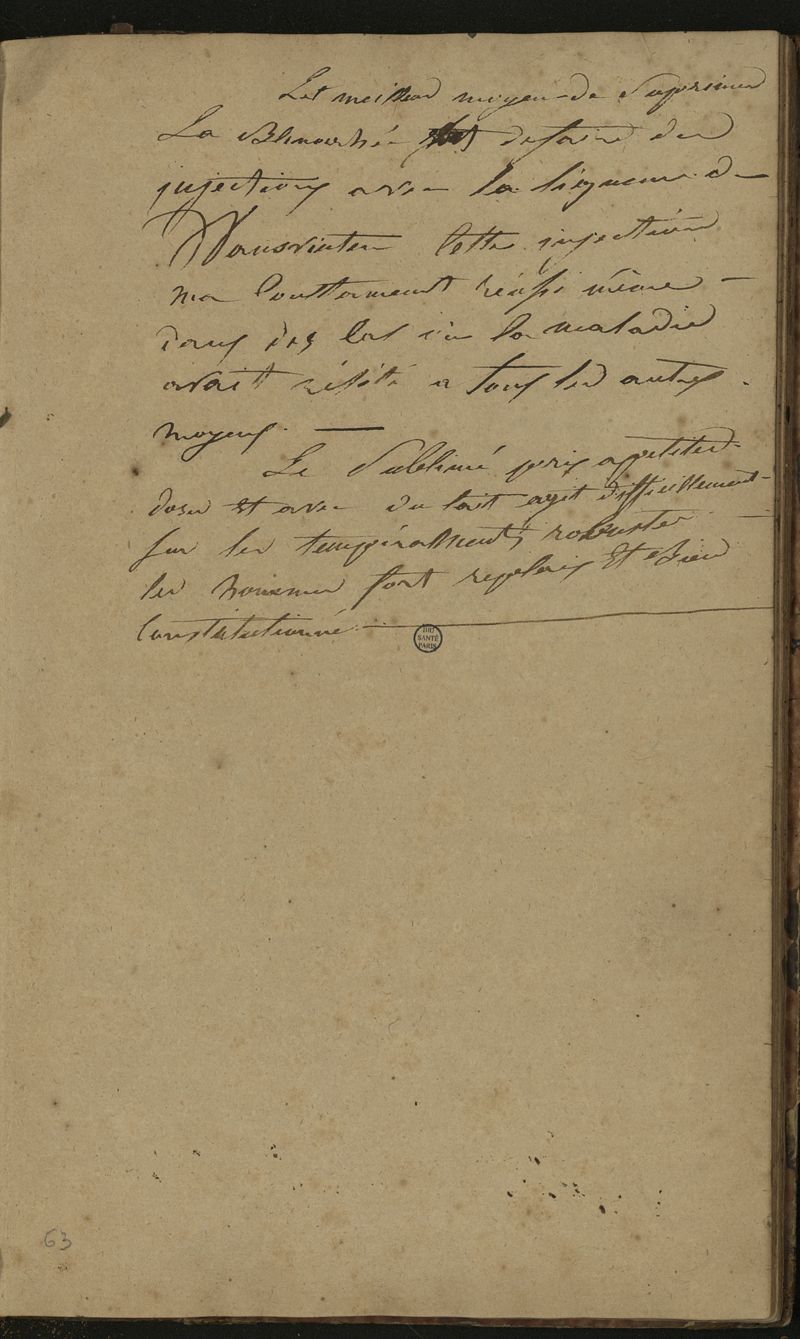 Les meilleur moyen de Suprimer
La Blenorrhée est defaire des
injections avec la liqueur de
Vanswieten Cette injection
ma Constament réussi même
dans des Cas ou la maladie
avait résisté a tous les autres
moyens.
Le Sublimé pris a petites
doses et avec du lait agit difficillement
sur les tempérallments robustes
les hommes fort replets Et Bien
Constitutionné
BIU
SANTÉ
PARIS
63